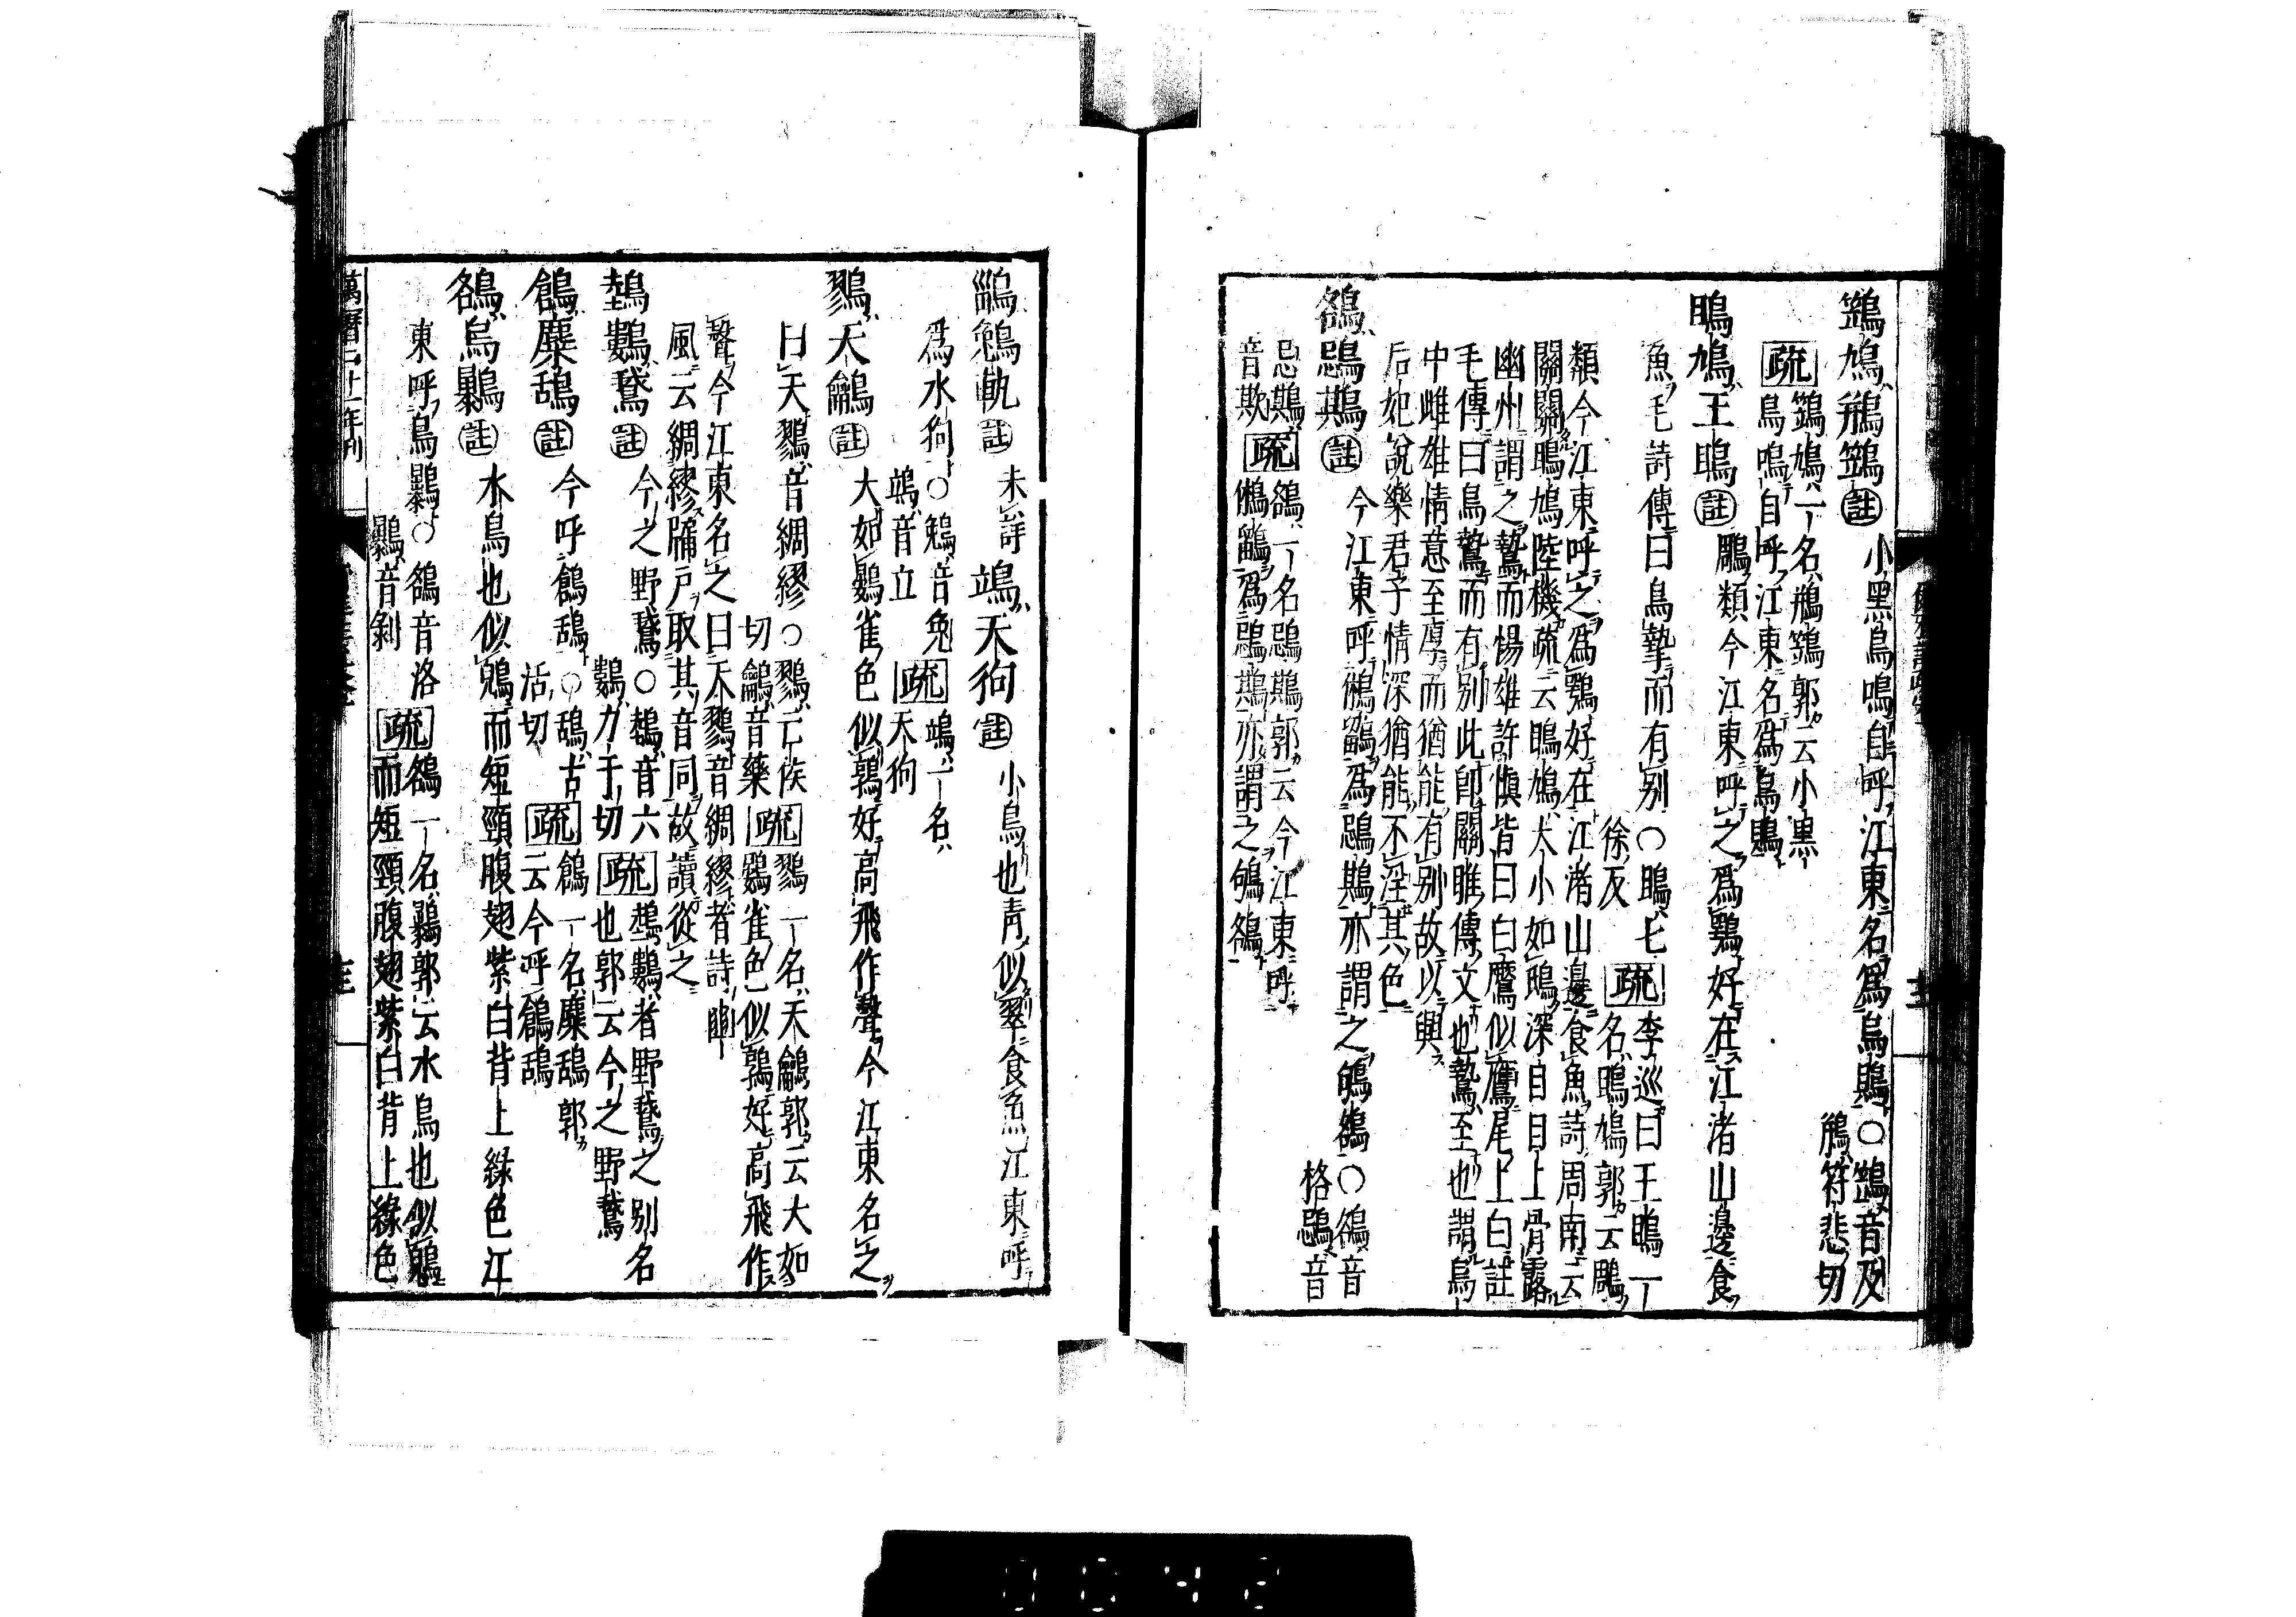 鶌鳩鶻鵃註小黑鳥鳴自呼江東名爲烏鵙○鵃音及
鵧符悲切
疏鴗鳩一名鵧鴗郭云小黑
鳥鳴自呼江東名爲烏鵙
鴡鳩王鴡註鵰類今江東呼之爲鶚好在江渚山邊食
魚毛詩傳曰鳥摯而有别○鴡七
徐反
疏李巡曰王鴡一
名鴡鳩郭云鵰
類今江東呼之爲鶚好在江渚山邊食魚詩周南云
關關鴡鳩陸機疏云鴡鳩大小如鴟深目目上骨露
幽州謂之鷲而楊雄許愼皆曰白鷹似鷹尾上白註
毛傳曰鳥鷙而有别此卽關雎傳文也鷙至也謂鳥
中雌雄情意至厚而猶能有别故以興
后妃說樂君子情深猶能不淫其色
鵅鵋䳢註今江東呼鵂鶹爲鵋䳢亦謂之鴝鵅○鵅音
格鵋音
忌䳢
音欺
疏鵅一名鵋䳢郭云今江東呼
鵂鶹爲鵋䳢亦謂之鴝鵅
鶅鵵軌註未詳鴗天狗註小鳥也青似翠食魚江東呼
爲水狗○鵵音兔
鴗音立
疏鴗一名
天狗
鷚天鸙註大如鷃雀色似鶉好高飛作聲今江東名之
曰天鷚音綢繆○鷚亡侯
切鸙音藥
疏鷚一名天鸙郭云大如
鷃雀色似鶉好高飛作
聲今江東名之曰天鷚音綢繆者詩豳
風云綢繆牖戶取其音同故讀從之
鵱鷜鵞註今之野鵞○鵱音六
鷜力于切
疏鵱鷜者野鵞之别名
也郭云今之野鵞
鶬麋鴰註今呼鶬鴰○鴰古
活切
疏鶬一名麋鴰郭
云今呼鶬鴰
鵅烏鸔註水鳥也似鶂而短頸腹翅紫白背上綠色江
東呼烏鸔○鵅音洛
鸔音剝
疏鵅一名鸔郭云水鳥也似鶂
而短頸腹翅紫白背上綠色
萬曆二十一年刋